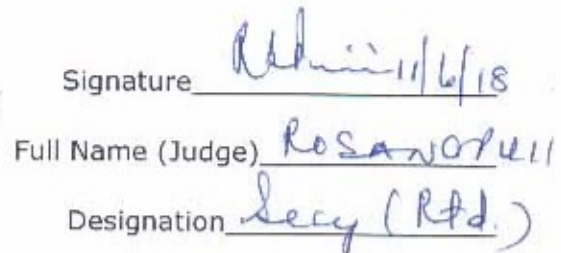 Signature 11/6/18
Full Name (Judge) ROSANGPUII
Designation Secy (Rtd.)